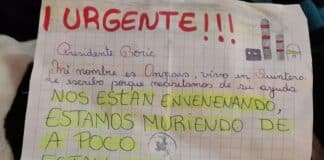 ¡URGENTE!!!
Presidente Boric
Mi nombre es Onnais, vivo en Quintero
le escribo porque necesitamos de su ayuda
NOS ESTAN ENVENENANDO,
ESTAMOS MURIENDO DE
A POCO